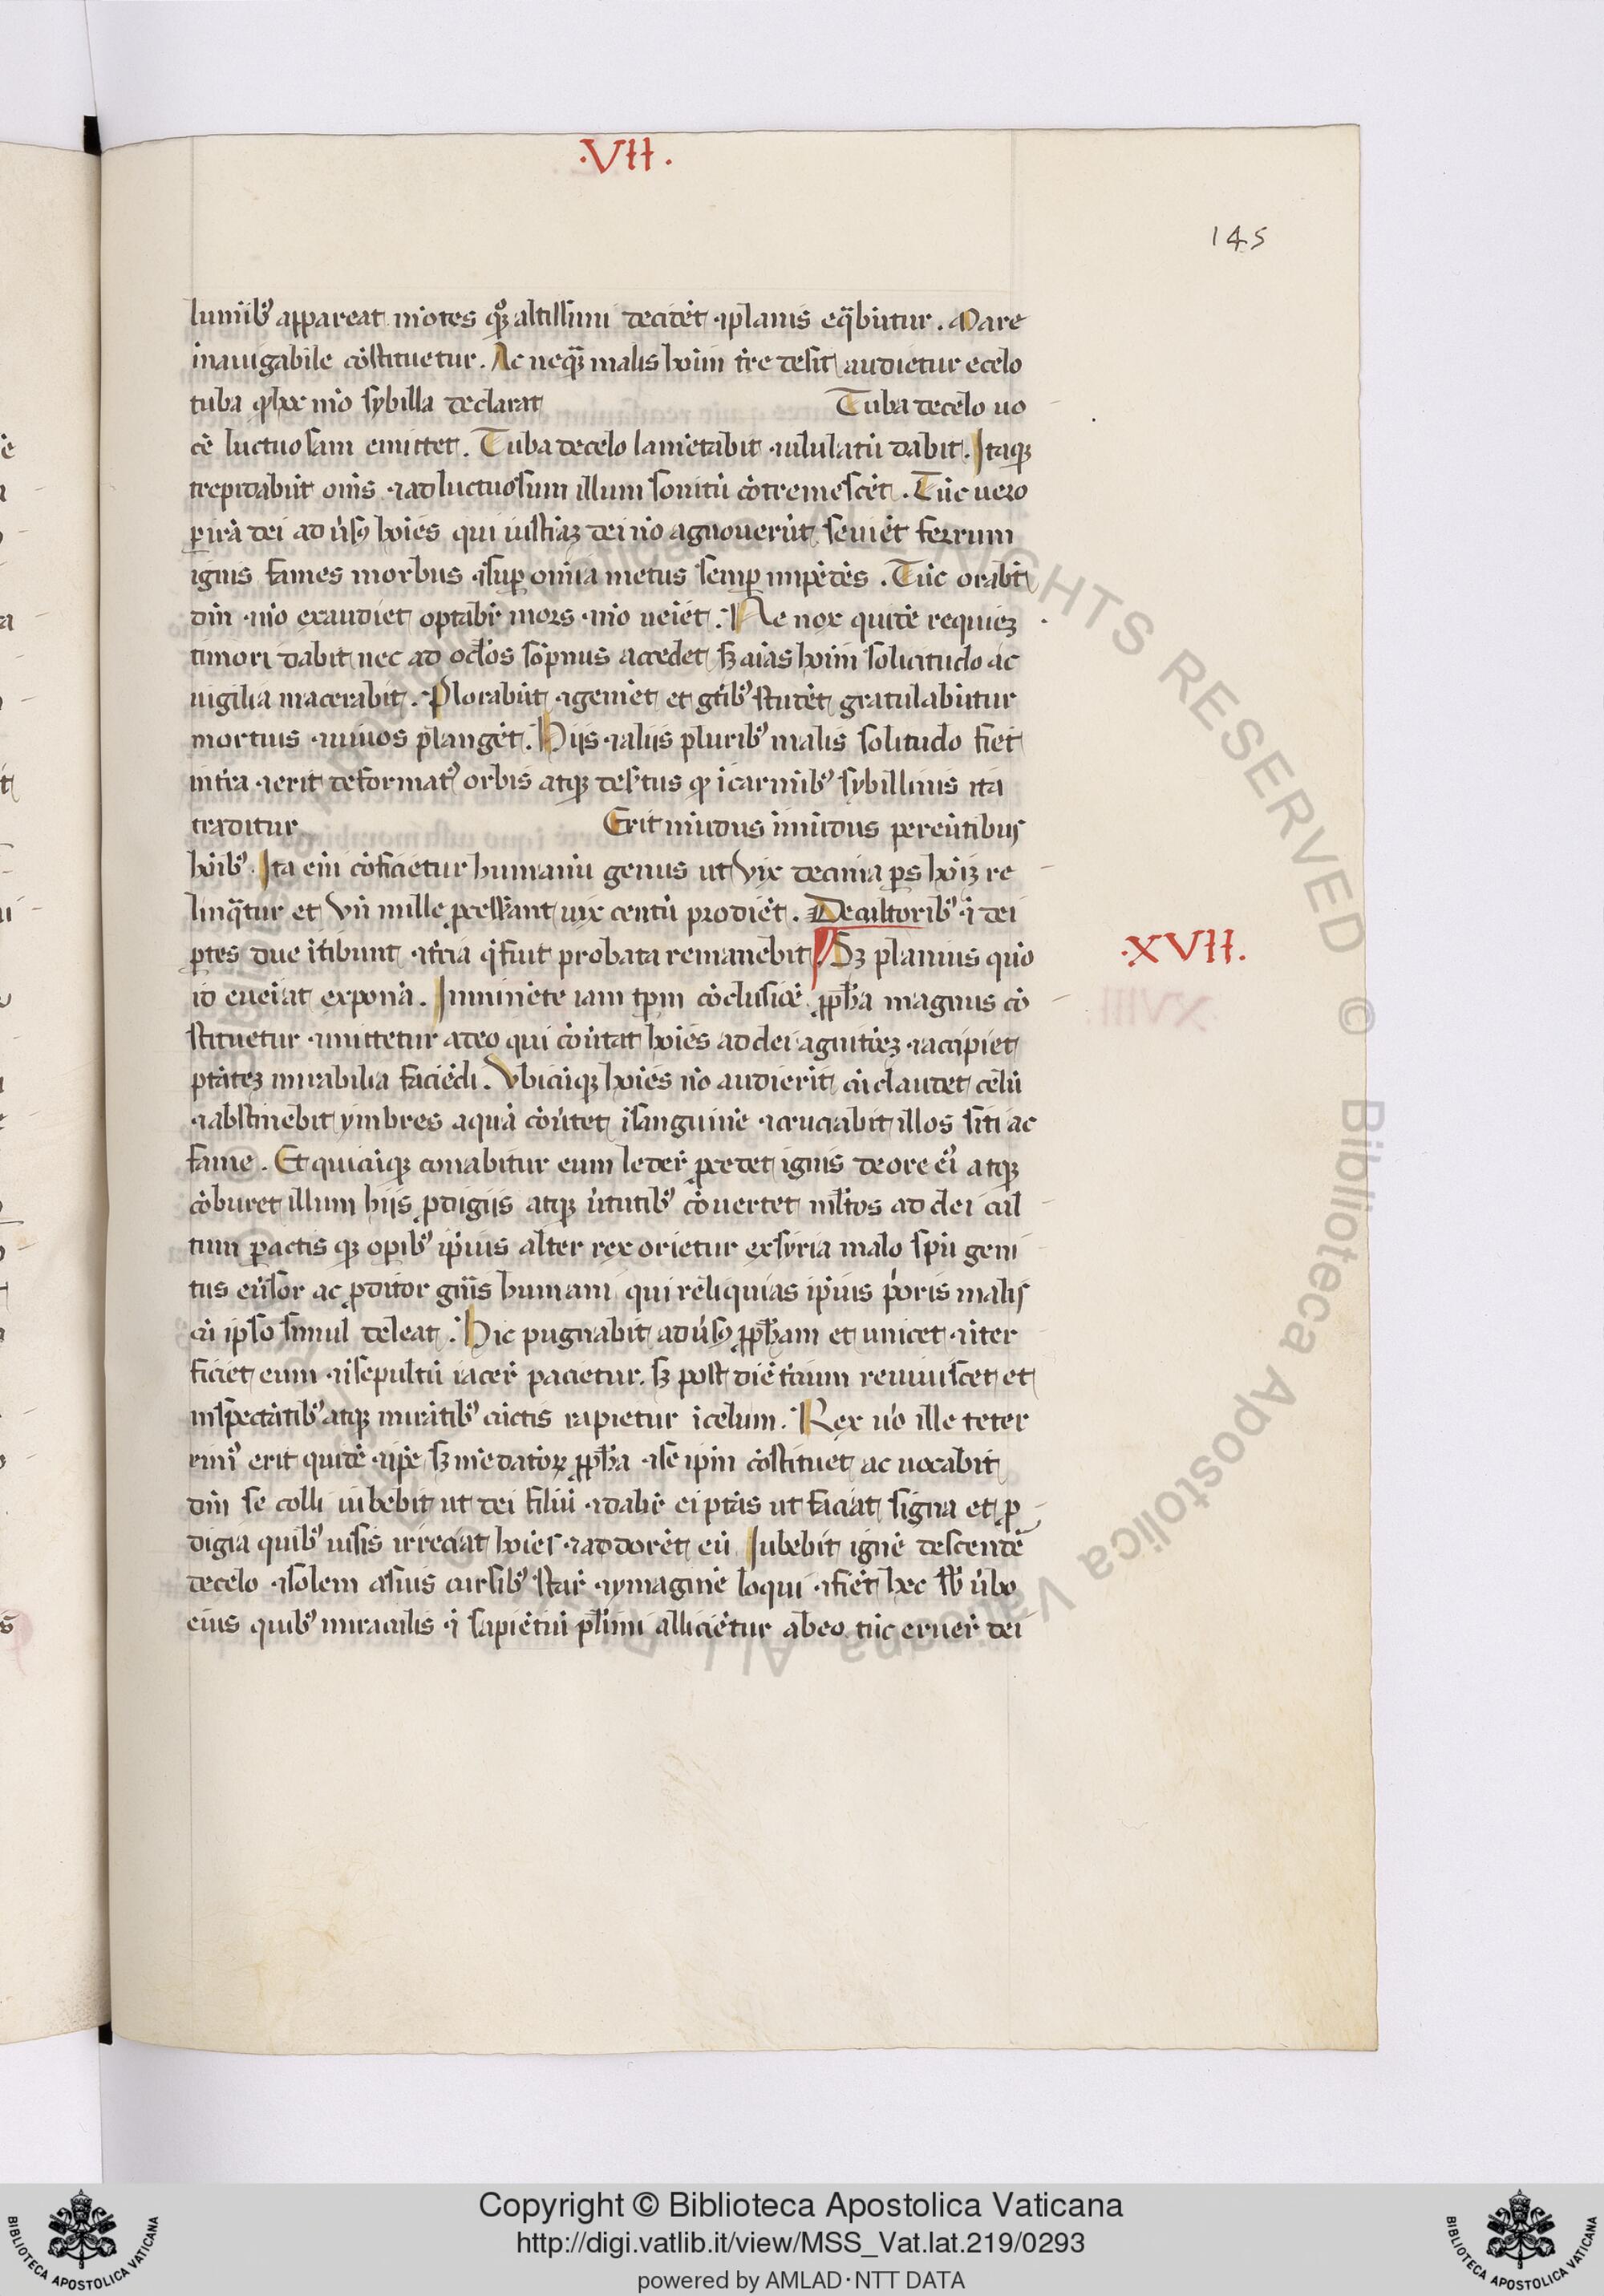 ·VII·
145
lumīib⁹ appareat mōtes qꝫ altissimi decidēt ⁊ planis eq̄būtur. Mare
īnauigabile cōstituetur. Ac neqꝫ malis hoīm t̄re desit audietur e celo
tuba qḥ hoc mō sybilla declarat Tuba de celo uo
cē luctuosam emittet. Tuba de celo lamētabit ⁊ ululatū dabit. Itaqꝫ
trepidabūt oms̄ ⁊ ad luctuosum illum sonitū cōtremescēt. Tūc uero
ꝑ irā dei aduˀsꝰ hoīes qui iustiāꝫ dei nō agnouerūt seuiēt ferrum
ignis fames morbus ⁊ suꝑ omīa metus semꝑ impēdēs. Tūc orabūt
dm̄ ⁊ nō exaudiet optabr̄ mors ⁊ nō ueiēt. Ne nox quidē requieꝫ
timori dabit nec ad oclōs sopnus accedet sꝫ aīas hoīm solicitudo ac
uigilia macerabit. Plorabūt ⁊ gemēt et gētib⁹ stridēt gratulabūtur
mortuis ⁊ uiuos plangēt. Hiis ⁊ aliis plurib⁹ malis solitudo fiet
in tr̄a ⁊ erit deformat⁹ orbis atqꝫ destus qḥ ī carmīb⁹ sybillinis ita
traditur Erit mūdus īmūdus pereūtibus
hoīb⁹. Ita eīm cōficietur humanū genus ut vix decima ꝑs hoīꝫ re
linq̄tur et vn̄ mille ꝓcesserant uix centū prodiēt. De cultorib⁹ q̇ dei
ꝑtes due ītibunt ⁊ tr̄cia q̇ fiut probata remanebit Sꝫ planius quō
id eueīat exponā. Imminēte iam tp̄m cōclusiōe ꝓph̄a magnus cō
stituetur ⁊ mittetur a deo qui cōuˀtat hoīes ad dei agnitōeꝫ ⁊ accipiet
ptāteꝫ mirabilia faciēdi. Vbicūqꝫ hoīes nō audierīt cū claudet celū
⁊ abstinebit ymbres aquā cōuˀtet ī sanguinē ⁊ cruciabit illos siti ac
fame. Et quicūqꝫ conabitur eum leder̄ ꝓcedet ignis de ore eī⁹ atqꝫ
cōburet illum hiis ꝓdigiis atqꝫ uˀtutib⁹ cōuertet ml̄tos ad dei cul
tum ꝑactisqꝫ opib⁹ ip̄ius alter rex orietur ex syria malo spū geni
tus euˀsor ac ꝑditor gn̄is humani qui reliquias ip̄ius pˀoris malis
cū ipso simul deleat. Hic pugnabit aduˀsꝰ ꝓph̄am et uincet ⁊ īter
ficiet eum ⁊ īsepultū iacer̄ pacietur. sꝫ post diē tˀcium reuiuiscet et
inspectātib⁹ atqꝫ mirātib⁹ cūctis rapietur ī celum. Rex uˀo ille teter
rim⁹ erit quidē ⁊ ip̄e sꝫ mēdatioꝝ ꝓph̄a ⁊ se ip̄m cōstituet ac uocabit
dm̄ se colli iubebit ut dei filiū ⁊ dabr̄ ei ptās ut faciat signa et ꝓ
digia quib⁹ uisis irreciat hoīes ⁊ adorēt eū Iubebit ignē descende
de celo ⁊ solem a suis cursib⁹ star̄ ⁊ ymaginē loqui ⁊ fiēt hec sb̄ uˀbo
eius quib⁹ miraculis q̇ sapiētiū pl̄imi alliciētur ab eo. tūc eruer̄ dei
·XVII·
Copyright © Biblioteca Apostolica Vaticana
http://digi.vatlib.it/view/MSS_Vat.lat.219/0293
powered by AMLAD·NTT DATA